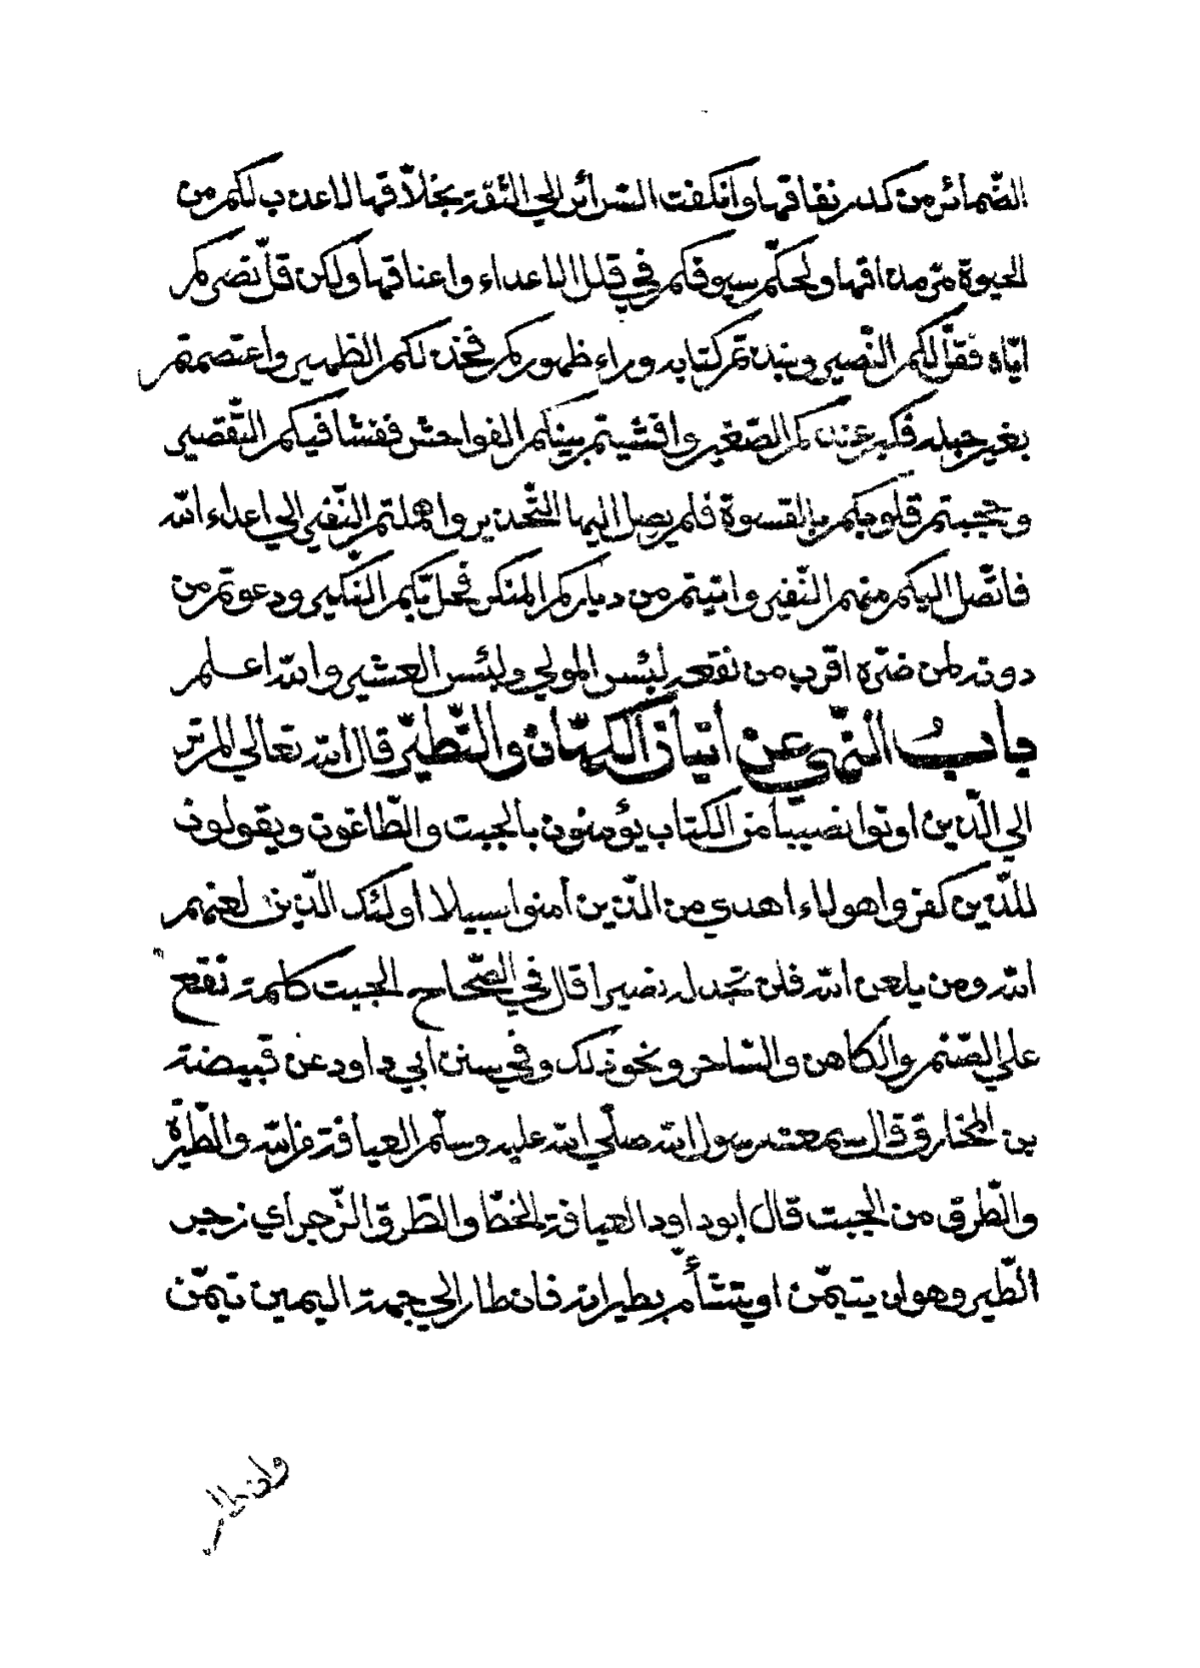 الضّمائر من كدر نفاقها وانكفت السّرائر الي الثّقة بخلاّقها لاعذب لكم من
الحيوة مرّ مذاقها ولحكّم سيوفكم في قلل الاعداء واعناقها ولكن قلّ نصركم
ايّاه فقلّ لكم النّصير ونبذتم كتابه وراء ظهوركم فخذلكم الظهير واعتصمتم
بغير حبله فكبر عندكم الصّغير وافشيتم بينكم الفواحش ففشا فيكم التّقصير
وحجبتم قلوبكم بالقسوة فلم يصل اليها التّحذير واهملتم النّفير الي اعداء الله
فاتّصل اليكم منهم النّفير واتيتم من دياركم المنكر فحلّ بكم النّكير ودعوتم من
دونه لمن ضرّه اقرب من نفعه لبئس المولي ولبئس العشير والله اعلم
باب النّهي عن اتيان الكهّان والتّطيّر قال الله تعالي الم تر
الي الّذين اوتوا نصيبا من الكتاب يؤمنون بالجبت والطّاغوت ويقولون
للّذين كفروا هولاء اهدي من الّذين آمنوا سبيلا اولئك الّذين لعنهم
الله ومن يلعن الله فلن تجد له نصيرا قال في الصّحاح الجبت كلمة تقع
علي الصّنم والكاهن والسّاحر ونحو ذلك وفي سنن أبي داود عن قبيصة
بن المخارق قال سمعت رسول الله صلّي الله عليه وسلّم العيافة والطّيرة
والطّرق من الجبت قال ابو داود العيافة الخطّ والطّرق الزّجر أي زجر
الطّير وهو ان يتيمّن او يتشأّم بطيرانه فان طار الي جهة اليمين تيمّن
وان طار